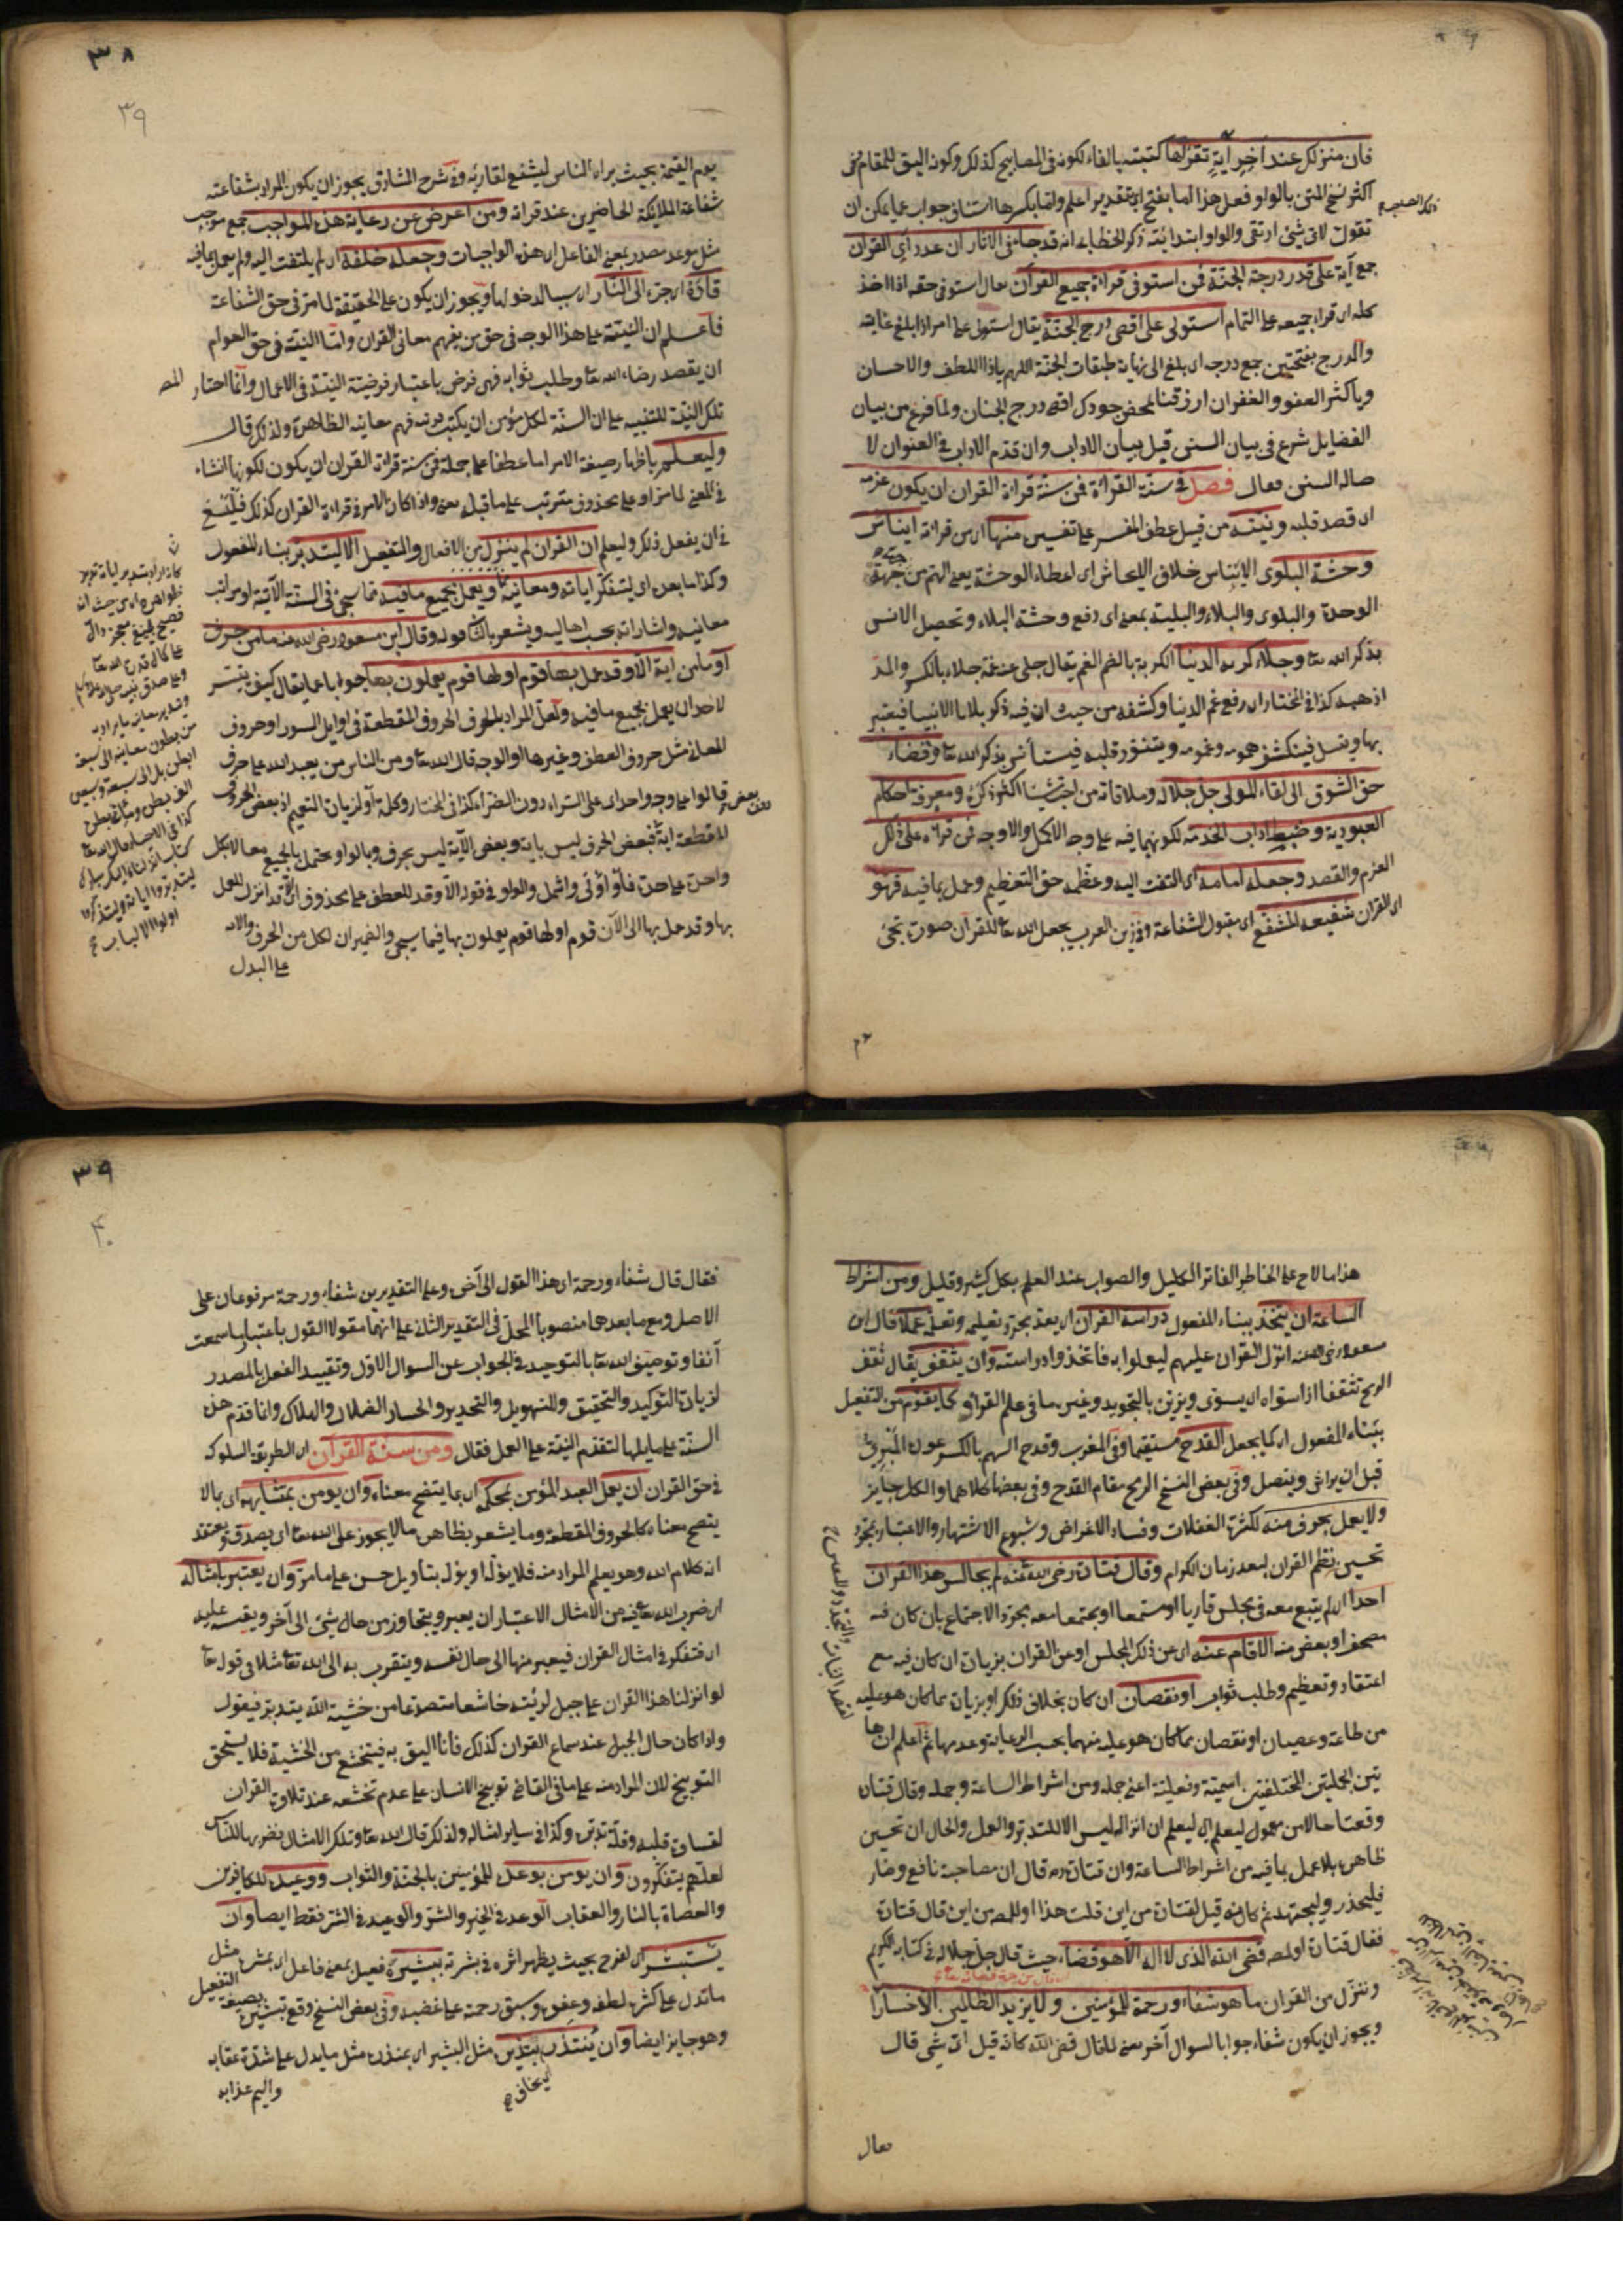 فان منزلك عند اخر اية تقرؤها كتبته بالفاء لكونه في المصابيح كذلك وكونه اليق للمقام وفي
اكثر نسخ المتن بالواو فعل هذا اما بفتح ان بتقدير اعلم واما بكسرها استئناف جواب عما يمكن ان
تقول لاي شئ ارتقي والواو ابتدائية ذكر الخطابي انه قد جاء في الاثار ان عدد آي القرآن
جمع آية على قدر درجة الجنة فمن استوفى قراءة جميع القرآن يقال استوفى حقه اذا اخذ
كله اي قرا جميعه على التمام استولى على اقصى درج الجنة يقال استولى على امر اذا بلغ غايته
والدرج بفتحتين جمع درجة اي بلغ الى نهاية طبقات الجنة اللهم ياذا اللطف والاحسان
ويا كثير العفو والغفران ارزقنا بمحض جودك اقصى درج الجنان ولما فرغ من بيان
الفضايل شرع في بيان السنن قبل بيان الاداب وان قدم الاداب في العنوان لا
صالة السنن فقال فصل في سنة القراءة فمن سنة قراءة القران ان يكون عزمه
اي قصد قلبه ونيته من قبيل عطف المفسر على تفسير منها اي من قراءة ايناس
وحشة البلوى الايناس خلاف الايحاش اي اعطاء الوحشة يعني الهم من جهة
الوحدة والبلوى والبلاء والبلية بمعنى اي دفع وحشة البلاء وتحصيل الانس
بذكر الله تعا وجلاء كربة الدنيا الكربة بالضم الغم يقال جلى عنه غمه جلاء بالكسر والمد
اذهبه كذا في المختار اي رفع غم الدنيا وكشفه من حيث ان فيه ذكر بلايا الانبيا فيعتبر
بها ويتسل فينكشف همومه وغمومه ويتنور قلبه فيستأنس بذكر الله تعا وقضاء
حق الشوق الى لقاء المولى جل جلاله وملاقاته من احب شيئا اكثر ذكره ومعرفة احكام
العبودية وضبط اداب الخدمة لكونهما فيه على وجه الاكمل والاوجه فمن قراه على ذلك
العزم والقصد وجعله امامه اي التفت اليه وعظمه حق التعظيم وعمل بما فيه فهو
اي القرآن شفيعه المشفع اي مقبول الشفاعة وفي زين العرب يجعل الله تعا للقرآن صورة تجئ
٣٨
٣٩
يوم القيمة بحيث يراه الناس ليشفع لقارئه وفي شرح المشارق يجوز ان يكون المراد بشفاعته
شفاعة الملائكة الحاضرين عند قراته ومن اعرض عن رعاية هذه المواجب جمع موجب
مثل موعد مصدر بمعنى الفاعل اي هذه الواجبات وجعله خلفه اي لم يلتفت اليه ولم يعمل بما فيه
قاده اي جره الى النار اي سببا لدخولها ويجوز ان يكون على الحقيقة لما مر في حق الشفاعة
فاعلم ان النية على هذا الوجه في حق من يفهم معاني القران واما النية في حق العوام
ان يقصد رضاء الله تعا وطلب ثوابه فهي فرض باعتبار فرضية النية في الاعمال وانما اختار المص
تلك النية للتنبيه على ان السنة لكل مؤمن ان يكتب مرتبة فهم معانيه الظاهرة ولذلك قال
وليعلم باظهار صيغة الامر اما عطف على جملة فمن سنة قراءة القران ان يكون لكونها انشاء
في المعنى لما مر او على محذوف مترتب على ما قبله يعني واذا كان الامر في قراءة القران كذلك فلينبغ
في ان يفعل ذلك وليعلم ان القران لم ينزل من الافعال والتفعيل الا ليتدبر بناء المفعول
وكذا ما بعده اي ليتفكر اياته ومعانيه ويعمل بجميع ما فيه كما سيجئ في السنة الآتية
معانيه واشاراته بحسب اهاليه ويشعر بالثاني قوله وقال ابن مسعود رضي الله عنه ما من حرف
او ما من اية الا وقد عمل بها قوم او لها قوم يعملون بها جوابا عما يقال كيف يتيسر
لاحد ان يعمل بجميع ما فيه ولعل المراد بالحرف الحروف المقطعة في اوايل السور او حروف
المعاني مثل حروف العطف وغيرها او الوجه قال الله تعا ومن الناس من يعبد الله على حرف
قالوا على وجه واحد اي على السراء دون الضراء كذا في المختار وكلمة او لزيادة التعميم اذ بعض الحروف
المقطعة اية فبعض الحرف ليس باية وبعض الآية ليس بحرف وبالواو يحتمل الجميع معا لا بكل
واحد على حدة فأو اوفى واشمل والواو في قوله الا وقد للعطف على محذوف اي الا قد انزل للعمل
بها وقد عمل بها الى الآن قوم او لها قوم يعملون بها فيما سيجئ والضميران لكل من الحرف والاية
على البدل
خلواهره اي من حيث انه
فصيح بليغ معجز دال
على كمال قدرة الله تعا
وتدبر معانيه ما يراد به
من بطون معانيه الى سبعة
ابطن بل الى سبعة وسبعين
كذا في الاحياء قال الله تعا
كتاب انزلناه اليك مبارك
ليتدبروا اياته وليتذكر
اولوا الالباب
هذا ما لاح على الخاطر الفاتر الكليل والصواب عند العليم بكل كثير وقليل ومن اشراط
الساعة ان يتخذ ببناء المفعول دراسة القران اي يعد مجرد تعليمه وتعلمه عملا قال ابن
مسعود رضي الله عنه انزل القران عليهم ليعملوا به فاتخذوا دراسته وان يتثقف يقال ثقف
الرمح تثقيفا اذا سواه اي يسوى ويزين بالتجويد وغيره مما في علم القراءة كما يقوم من التفعيل
ببناء المفعول اي كما يجعل القدح مستقيما وفي المغرب وقدح السهم بالكسر عوده المبري
قبل ان يراش وينصل وفي بعض النسخ الرمح مقام القدح وفي بعضها كلاهما والكل جايز
ولا يعمل بحرف منه لكثرة الغفلات وفساد الاغراض وشيوع الاشتهار والاعتبار بمجرد
تحسين نظم القران لبعد زمان الكرام وقال قتادة رضي الله عنه لم يجالس هذا القران
احد اي لم يتبع معه في مجلس قاريا او مستمعا او مجتمعا معه بمجرد الاجتماع بان كان فيه
مصحف او بعض منه الا قام عنه اي عن ذلك المجلس او عن القران بزيادة ان كان فيه مع
اعتقاد وتعظيم وطلب ثواب او نقصان ان كان بخلاف ذلك او بزيادة عما كان هو عليه
من طاعة وعصيان او نقصان عما كان هو عليه منهما بحسب الرعاية وعدمها ثم اعلم ان ها
تين الجملتين المختلفتين اسمية وفعلية اعني جملة ومن اشراط الساعة وجملة وقال قتادة
وقعتا حالا من معمول ليعلم اي ليعلم ان انزاله ليس الا للتدبر والعمل والحال ان تحسين
ظاهره بلا عمل بما فيه من اشراط الساعة وان قتادة قال ان مصاحبة نافع وضار
فليحذر وليجتهد ثم كانه قيل لقتادة من اين قلت هذا او للمص من اين قال قتادة
فقال قتادة او المص قضى الله الذي لا اله الا هو قضاء حيث قال جل جلاله في كتابه الكريم
وننزل من القران ما هو شفاء ورحمة للمؤمنين ولا يزيد الظالمين الا خسارا
ويجوز ان يكون شفاء جوابا لسوال آخر يعني لما قال قضى الله كانه قيل اي شئ قال
فقال
٣٩
٤٠
فقال قال شفاء ورحمة اي هذا القول الى آخره وعلى التقديرين شفاء ورحمة مرفوعان على
الاصل ومع ما بعدهما منصوبا المحل في التقدير الثاني على انهما مقولا القول باعتبار ما سمعت
آنفا وتوصيف الله تعا بالتوحيد في الجواب عن السوال الاول وتقييد الفعل بالمصدر
لزيادة التوكيد والتحقيق والتهويل والتحذير والخسار الضلال والهلاك وانما قدم هذه
السنة على ما يليها لتقدم النية على العمل فقال ومن سنة القرآن اي الطريقة المسلوكة
في حق القران ان يعمل العبد المؤمن بمحكمه اي بما يتضح معناه وان يومن بمتشابهه اي بما لا
يتضح معناه كالحروف المقطعة وما يشعر بظاهره مالا يجوز على الله تعا اي يصدق ويعتقد
انه كلام الله وهو يعلم المراد منه فلا يؤل او يؤل بتاويل حسن على ما مر وان يعتبر بامثاله
اي ضرب الله تعا فيه من الامثال الاعتبار ان يعبر ويتجاوز من حال شئ الى آخر ويقيسه عليه
اي فتفكر في امثال القران فيعبر منها الى حال نفسه ويتقرب به الى الله تعا مثلا في قوله تعا
لو انزلنا هذا القران على جبل لرأيته خاشعا متصدعا من خشية الله يتدبر فيقول
واذا كان حال الجبل عند سماع القران كذلك فانا اليق به فيتخشع من الخشية فلا يستحق
التوبيخ لان المراد منه على ما في القاضي توبيخ الانسان على عدم تخشعه عند تلاوة القران
لقساوة قلبه وقلة تدبره وكذا في ساير امثاله ولذلك قال الله تعا وتلك الامثال نضربها للناس
لعلهم يتفكرون وان يومن بوعده للمؤمنين بالجنة والثواب ووعيده للكافرين
والعصاة بالنار والعقاب الوعد في الخير والشر والوعيد في الشر فقط ايضا وان
يستبشر اي لفرح بحيث يظهر اثره في بشرته ببشيره فعيل بمعنى فاعل اي بمبشره مثل
ما تدل على كثرة لطفه وعفوه وسبق رحمته على غضبه وفي بعض النسخ وقع تبشيره بصيغة التفعيل
وهو جايز ايضا وان ينتذر بنذيره مثل البشير اي بمنذره مثل ما يدل على شدة عقابه
اي يخاف
واليم عذابه